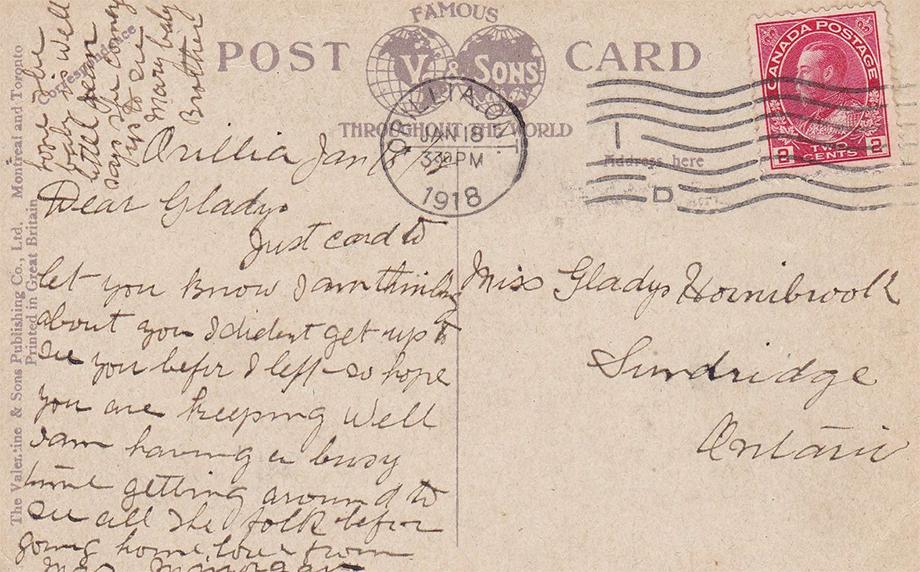 FAMOUS
POST V. & SONS CARD
THROUGHOUT THE WORLD
Correspondence
Address here
The Valentine & Sons Publishing Co., Ltd. Montreal and Toronto
Printed in Great Britain
CANADA POSTAGE
2 TWO CENTS 2
ORILLIA, ONT
JAN 18
330 PM
1918
I
D
Orillia Jan
Dear Gladys
Just card to
let you Know I am thinking
about you I dident get up to
see you befor I left so hope
you are keeping well
I am having a busy
time getting around to
see all the folk befor
going home love from
Mrs
baby is well
little Jean
says
to see
Mary baby
Brother
Miss Gladys Hornibrook
Sundridge
Ontario